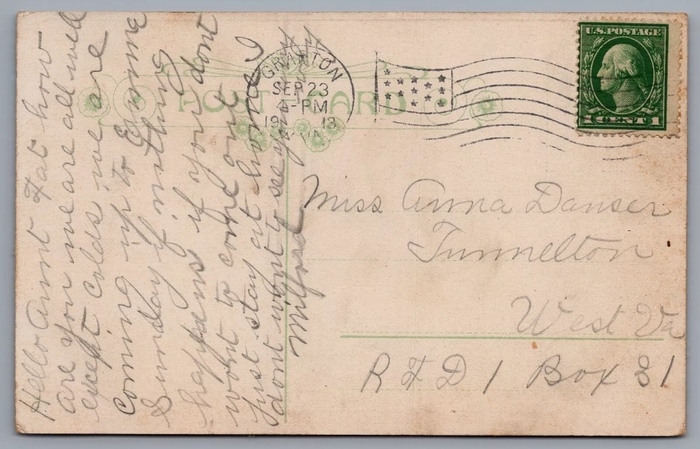 Hello Aunt Fat how
are you we are all well
except colds we are
coming up to Emma
Sunday if nothing
happens if you dont
want to come out
Just stay at home I
dont want to see you
Milford
POST CARD
GRAFTON
SEP 23
4-PM
1913
W.VA.
U.S. POSTAGE
1 CENT 1
Miss Anna Danser
Tunnelton
West Va
R F D 1 Box 81